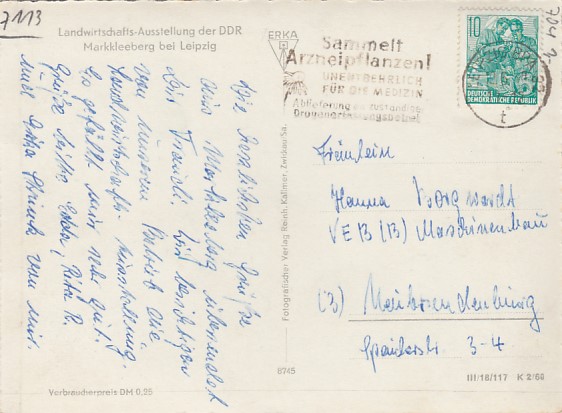 7113
Landwirtschafts-Ausstellung der DDR
Markkleeberg bei Leipzig
Die herzlichsten Grüße
aus Markkleeberg übersendet
Dir Traudl. Wir besichtigen
von unserem Betrieb die
Landwirtschafts-Ausstellung.
Es gefällt mir sehr gut.
Grüße bitte
von mir.
Verbraucherpreis DM 0,25
ERKA
Fotografischer Verlag Reinh. Kallmer, Zwickau/Sa.
8745
Sammelt
Arzneipflanzen!
UNENTBEHRLICH
FÜR DIE MEDIZIN
Ablieferung an zuständige
10
DEUTSCHE
DEMOKRATISCHE REPUBLIK
t
Fräulein
Hanna Borgwardt
VEB (B) Maschinenbau
Neubrandenburg
3-4
III/18/117 K 2/60